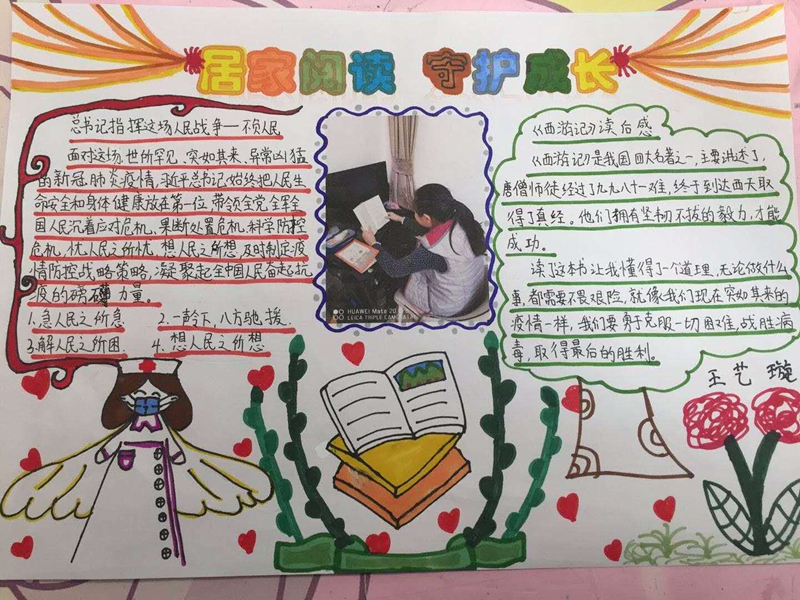 居家阅读 守护成长
总书记指挥这场人民战争—不负人民
面对这场世所罕见、突如其来、异常凶猛
的新冠肺炎疫情,习近平总书记始终把人民生
命安全和身体健康放在第一位,带领全党全军全
国人民沉着应对危机,果断处置危机,科学防控
危机,忧人民之所忧、想人民之所想,及时制定疫
情防控战略策略,凝聚起全国人民奋起抗
疫的磅礴力量。
1.急人民之所急 2.一声令下,八方驰援.
3.解人民之所困 4.想人民之所想
HUAWEI Mate 20
LEICA TRIPLE CAMERA
《西游记》读后感
《西游记》是我国四大名著之一,主要讲述了,
唐僧师徒经过了九九八十一难,终于到达西天取
得了真经。他们拥有坚韧不拔的毅力,才能
成功。
读了这本书让我懂得了一个道理,无论做什么
事,都需要不畏艰险,就像我们现在突如其来的
疫情一样,我们要勇于克服一切困难,战胜病
毒,取得最后的胜利。
王艺璇